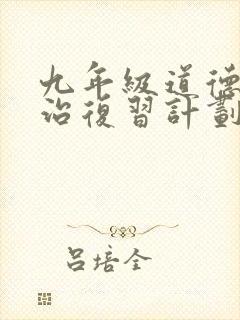 九年級道德
治復習計劃
呂培全